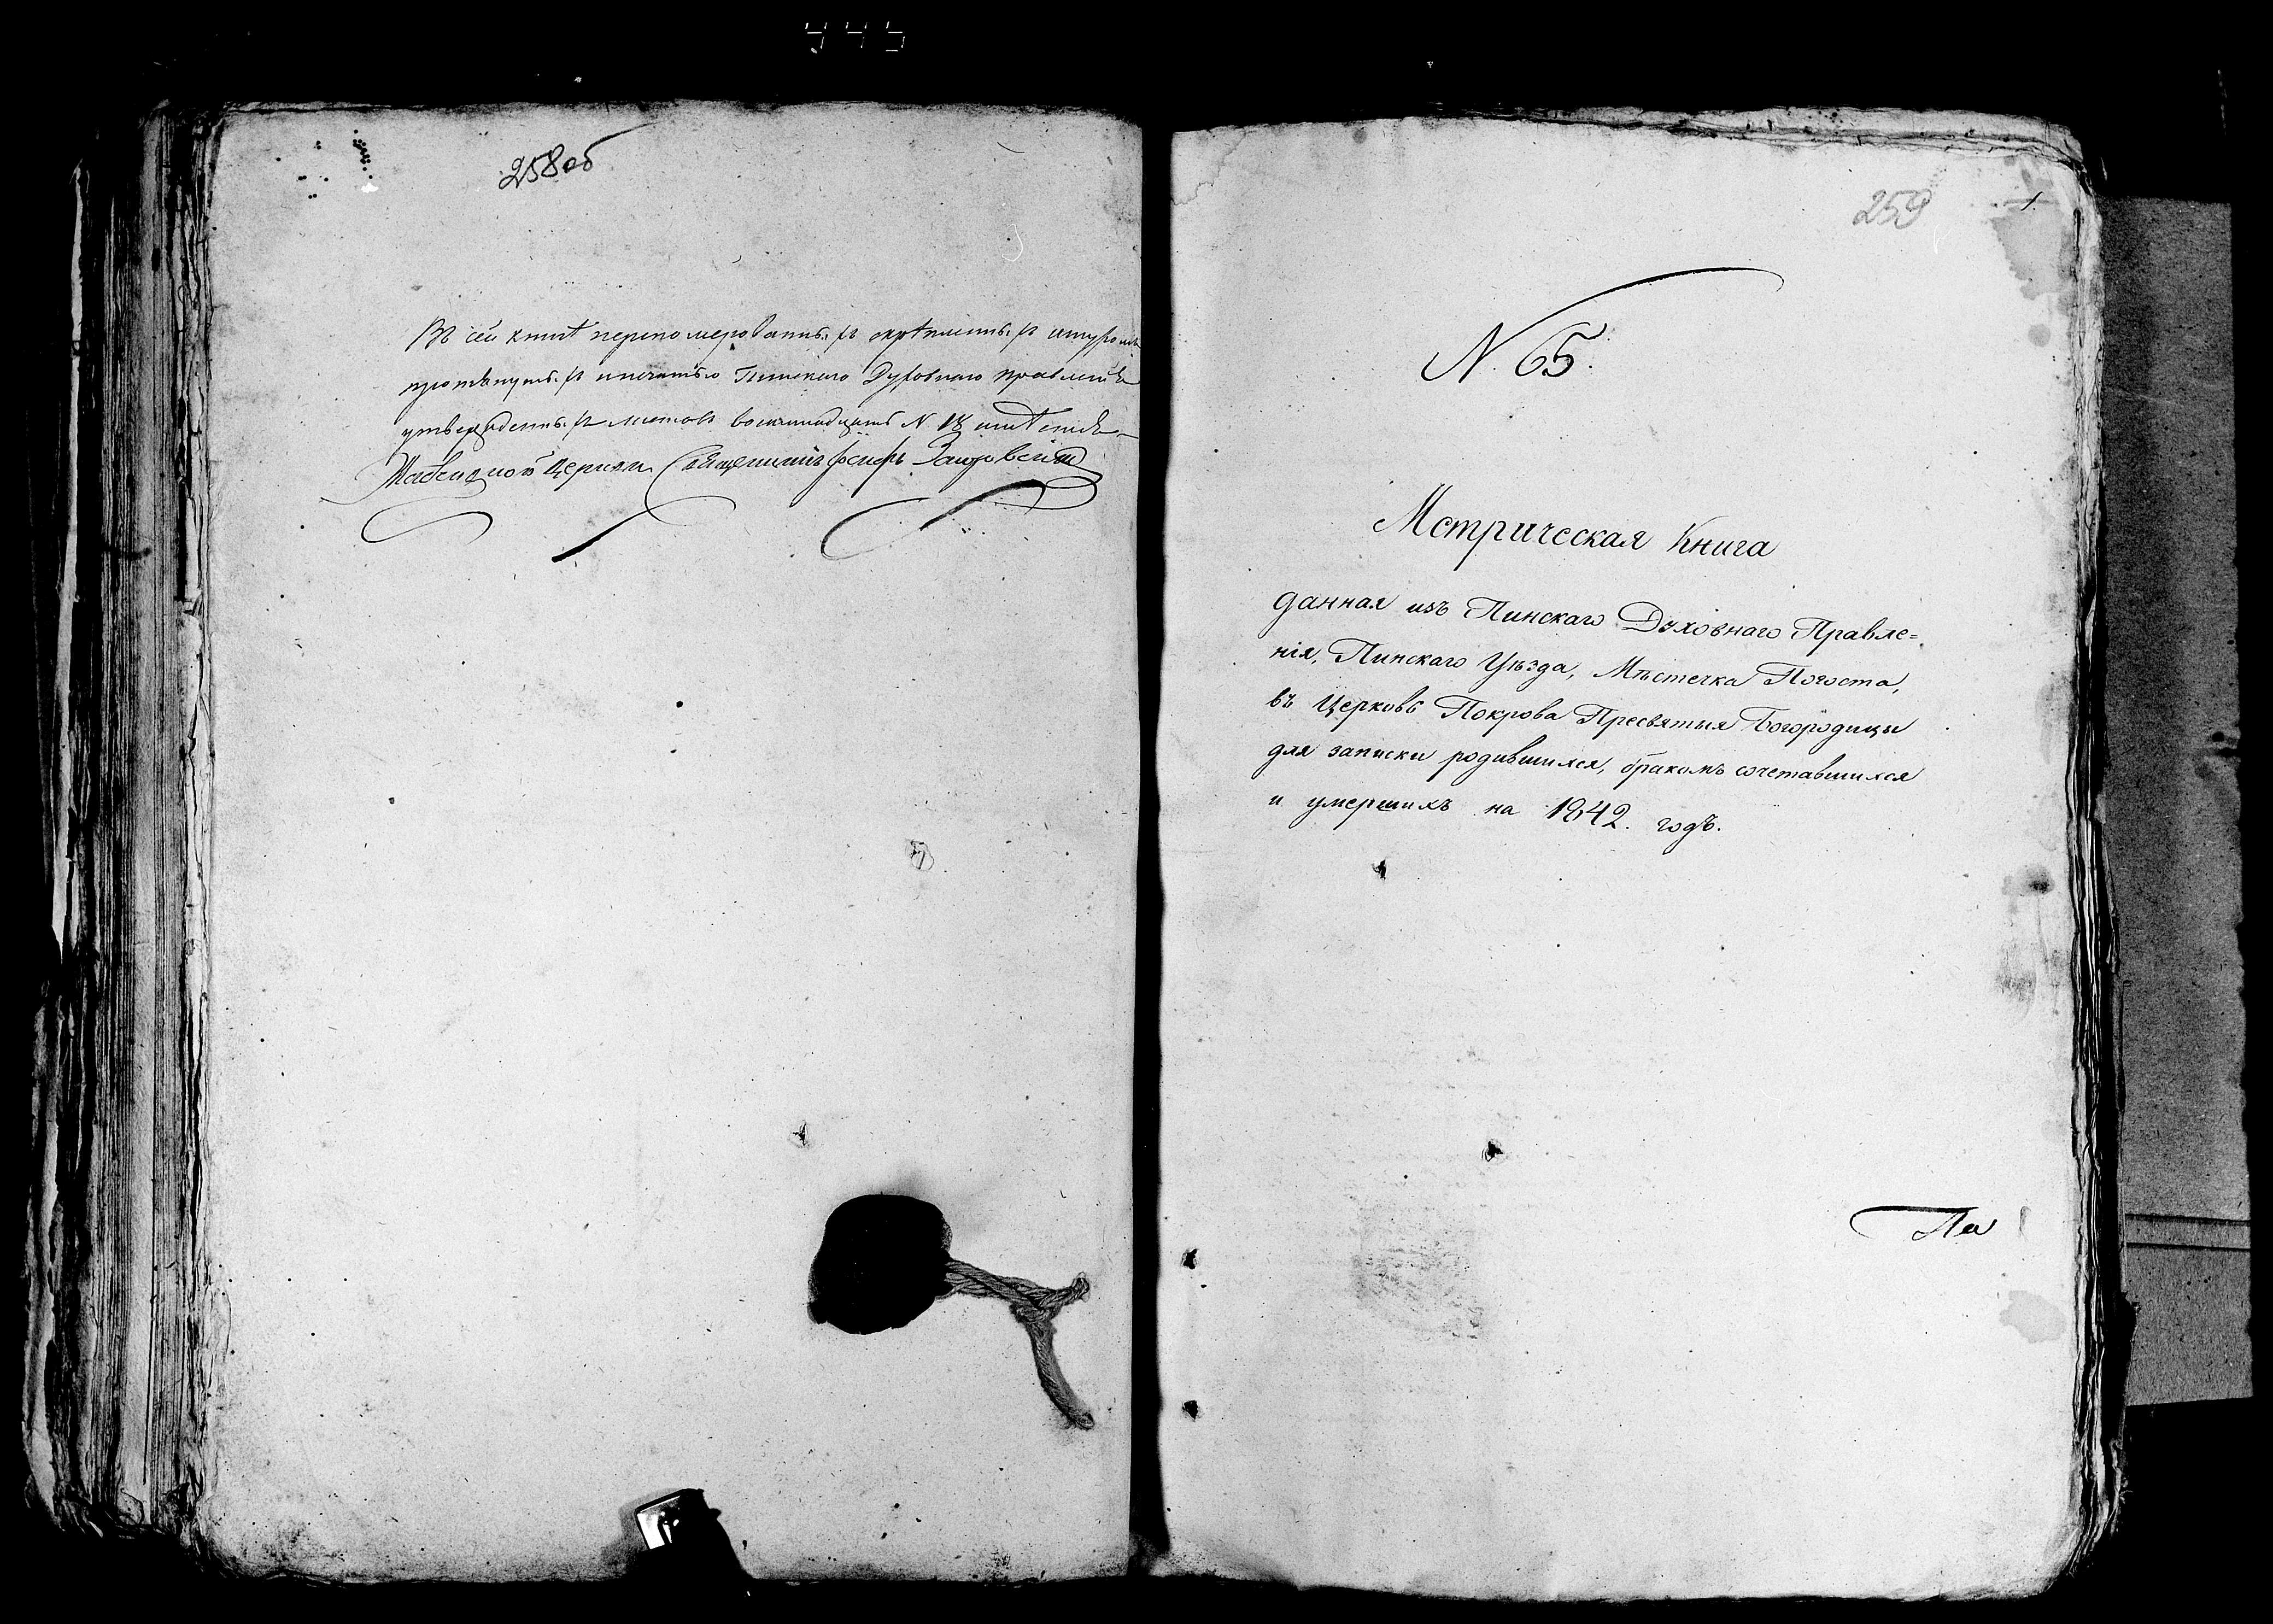 258 об
Въ сей книгѣ перенумерованныхъ скрѣпленныхъ шнуромъ
протянутыхъ и печатью Пинскаго Духовнаго Правленія
утвержденныхъ листовъ восемнадцать N. 18
церкви Священникъ Іосифъ
259
1.
N. 65.
Метрическая Книга
данная изъ Пинскаго Духовнаго Правле=
нія, Пинскаго Уѣзда, Мѣстечка Погоста,
въ Церковь Покрова Пресвятыя Богородицы
для записки родившихся, бракомъ сочетавшихся
и умершихъ на 1842. годъ.
По